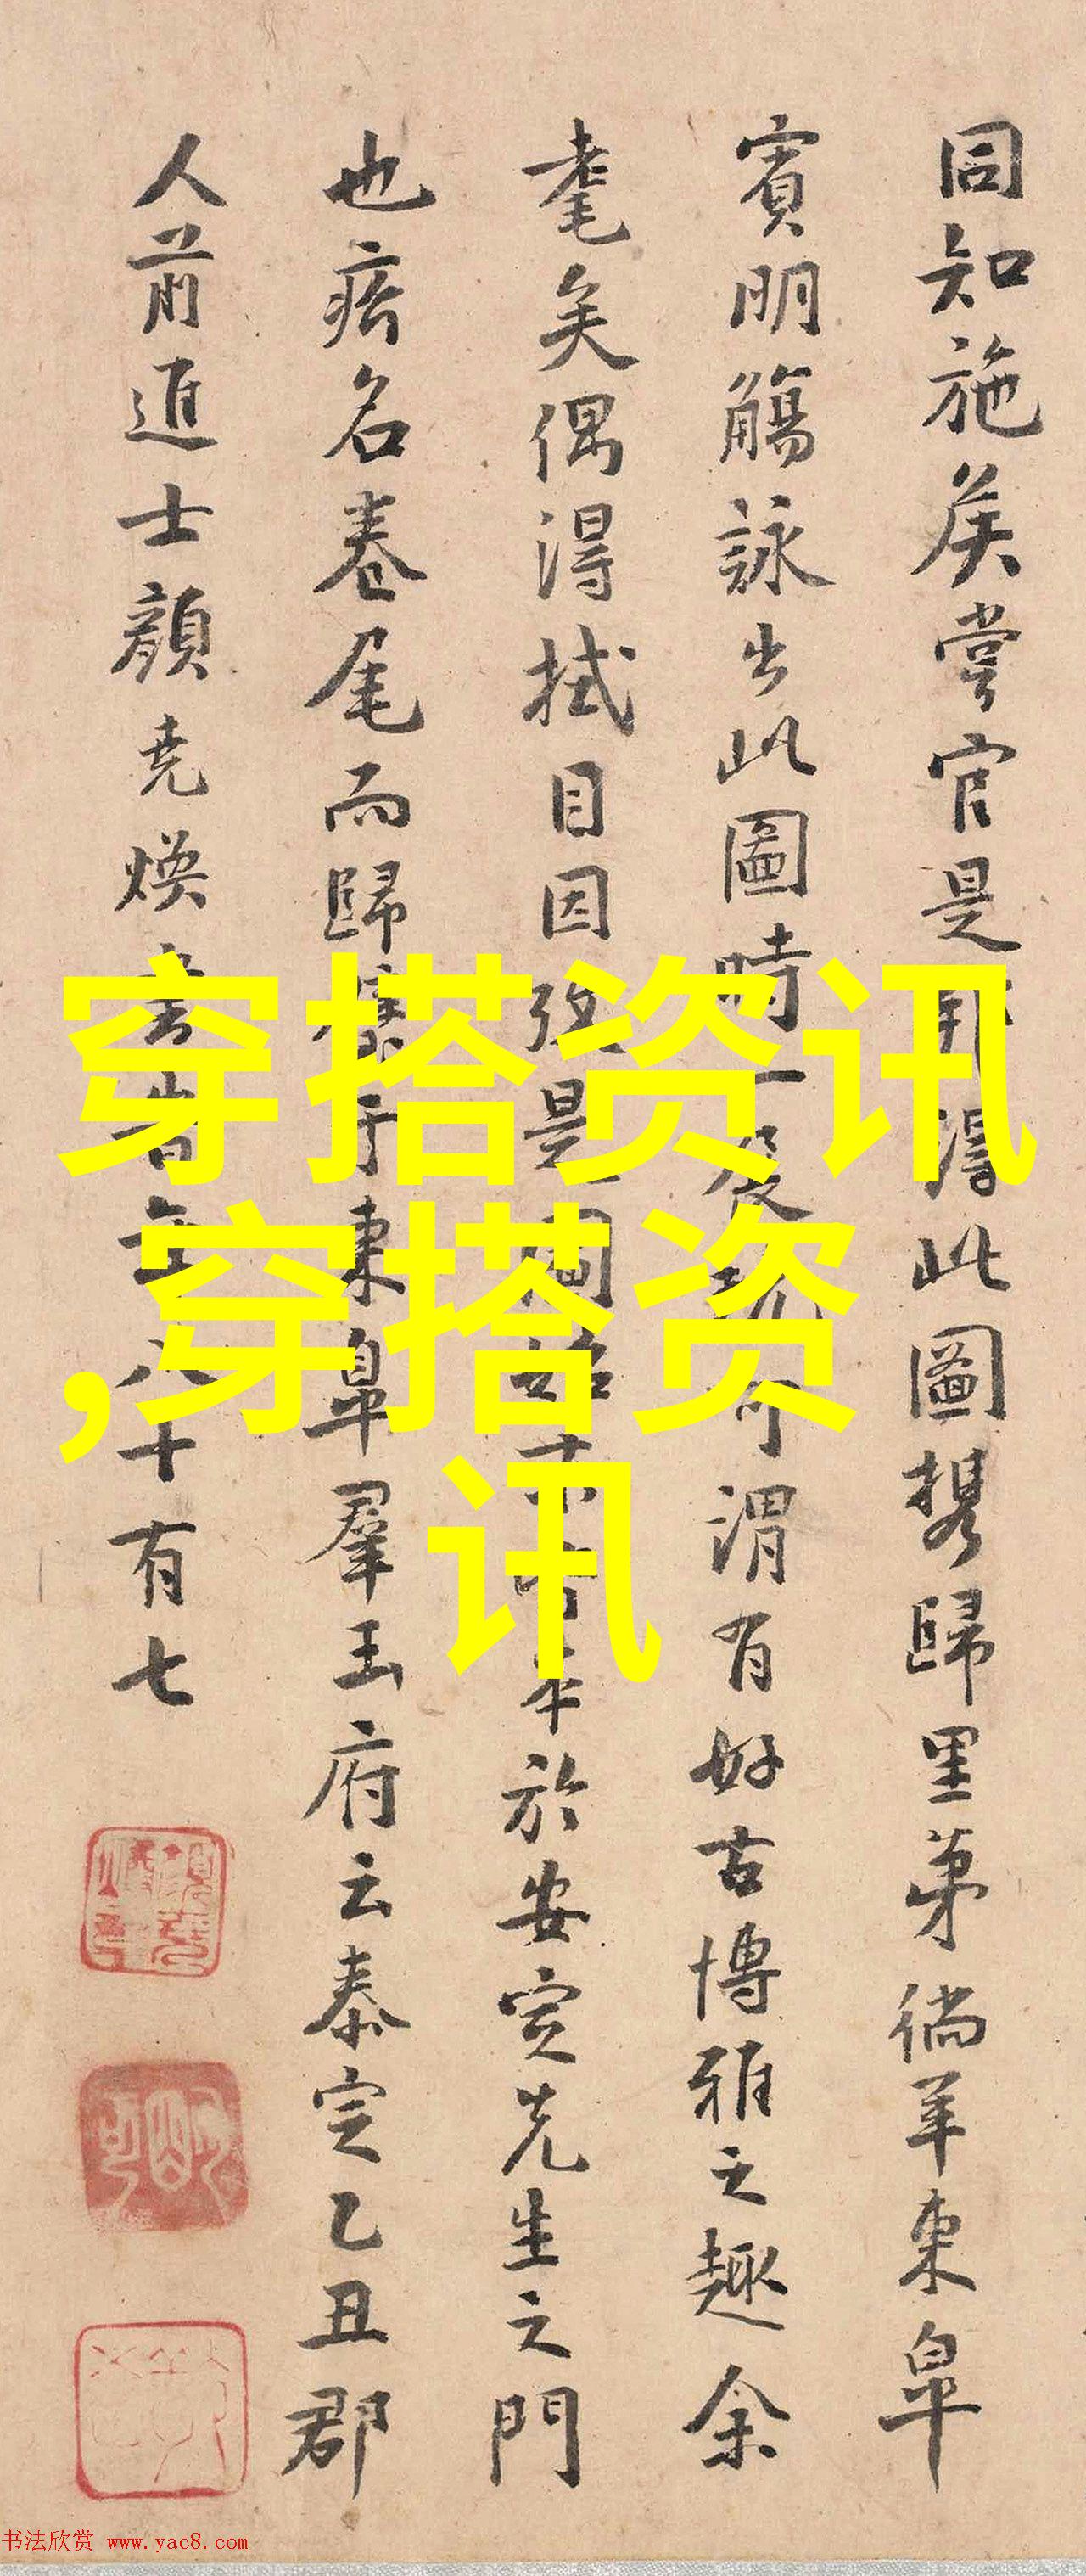 同知施侯嘗官是邦得此圖携歸里第徜羊東皋
賓明觴詠出此圖時一展玩可謂有好古博雅之趣余
耄矣偶得拭目因攷是圖始末
於安定先生之門
也瘖名卷尾而歸于東皋羣玉府云泰定乙丑郡
人前進士顏堯煥書 八十有七
穿搭资讯
,穿搭资
讯
书法欣赏 www.yac8.com